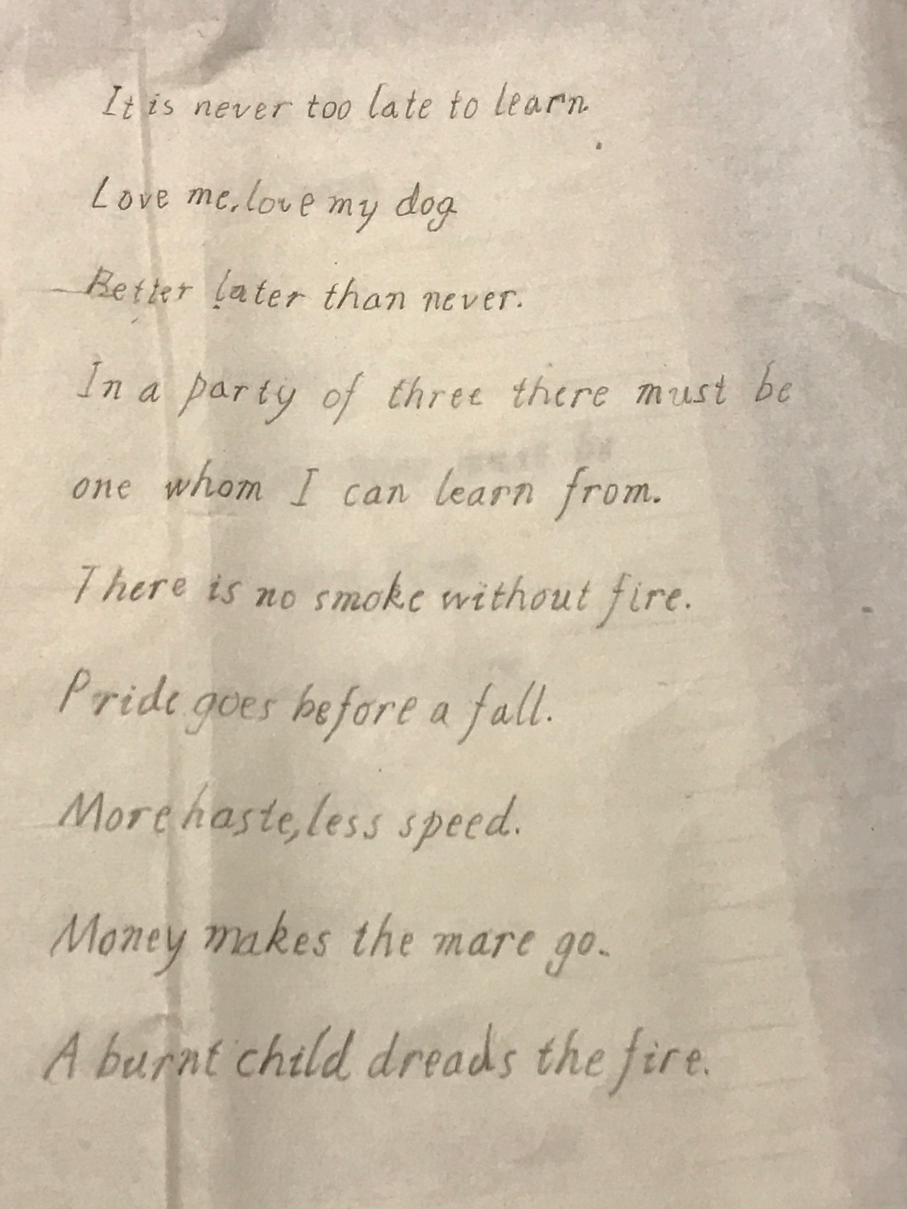 It is never too late to learn.
Love me, love my dog
Better later than never.
In a party of three there must be
one whom I can learn from.
There is no smoke without fire.
Pride goes before a fall.
More haste, less speed.
Money makes the mare go.
A burnt child dreads the fire.